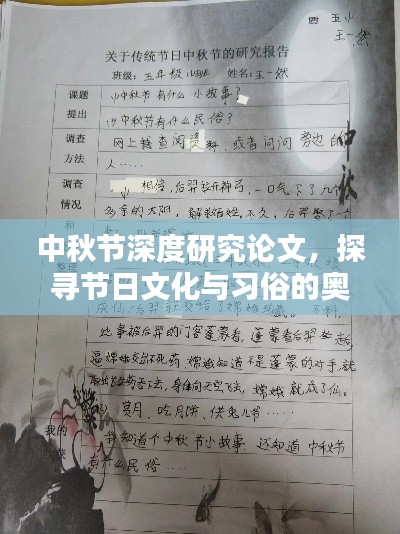 西 五小
王一然
关于传统节日中秋节的研究报告
班级：五年级 班 姓名：王一然
课题提出
(1)中秋节有什么 小故事？
(2)中秋节有什么民俗？
调查方法
网上转查阅资料、或者问问 旁边的
人……
中秋
调查情况和
相传，后羿拉开神弓，一口气下了九个
多余的太阳，解救 不久，后羿娶了
中秋节深度研究论文，探
寻节日文化与习俗的奥
整理
成仙 后羿 给了嫦娥 不料，
此事被后羿的门客蓬蒙看，蓬蒙看后羿 走后
逼嫦娥交出不死药 嫦娥知道不是蓬蒙的对手，就
下去，身体向天空飞去，嫦娥就成了仙。
(2)赏月、吃月饼、供兔儿爷……
我的
我知道了中秋节小故事，还知道中秋节
有什么民俗……